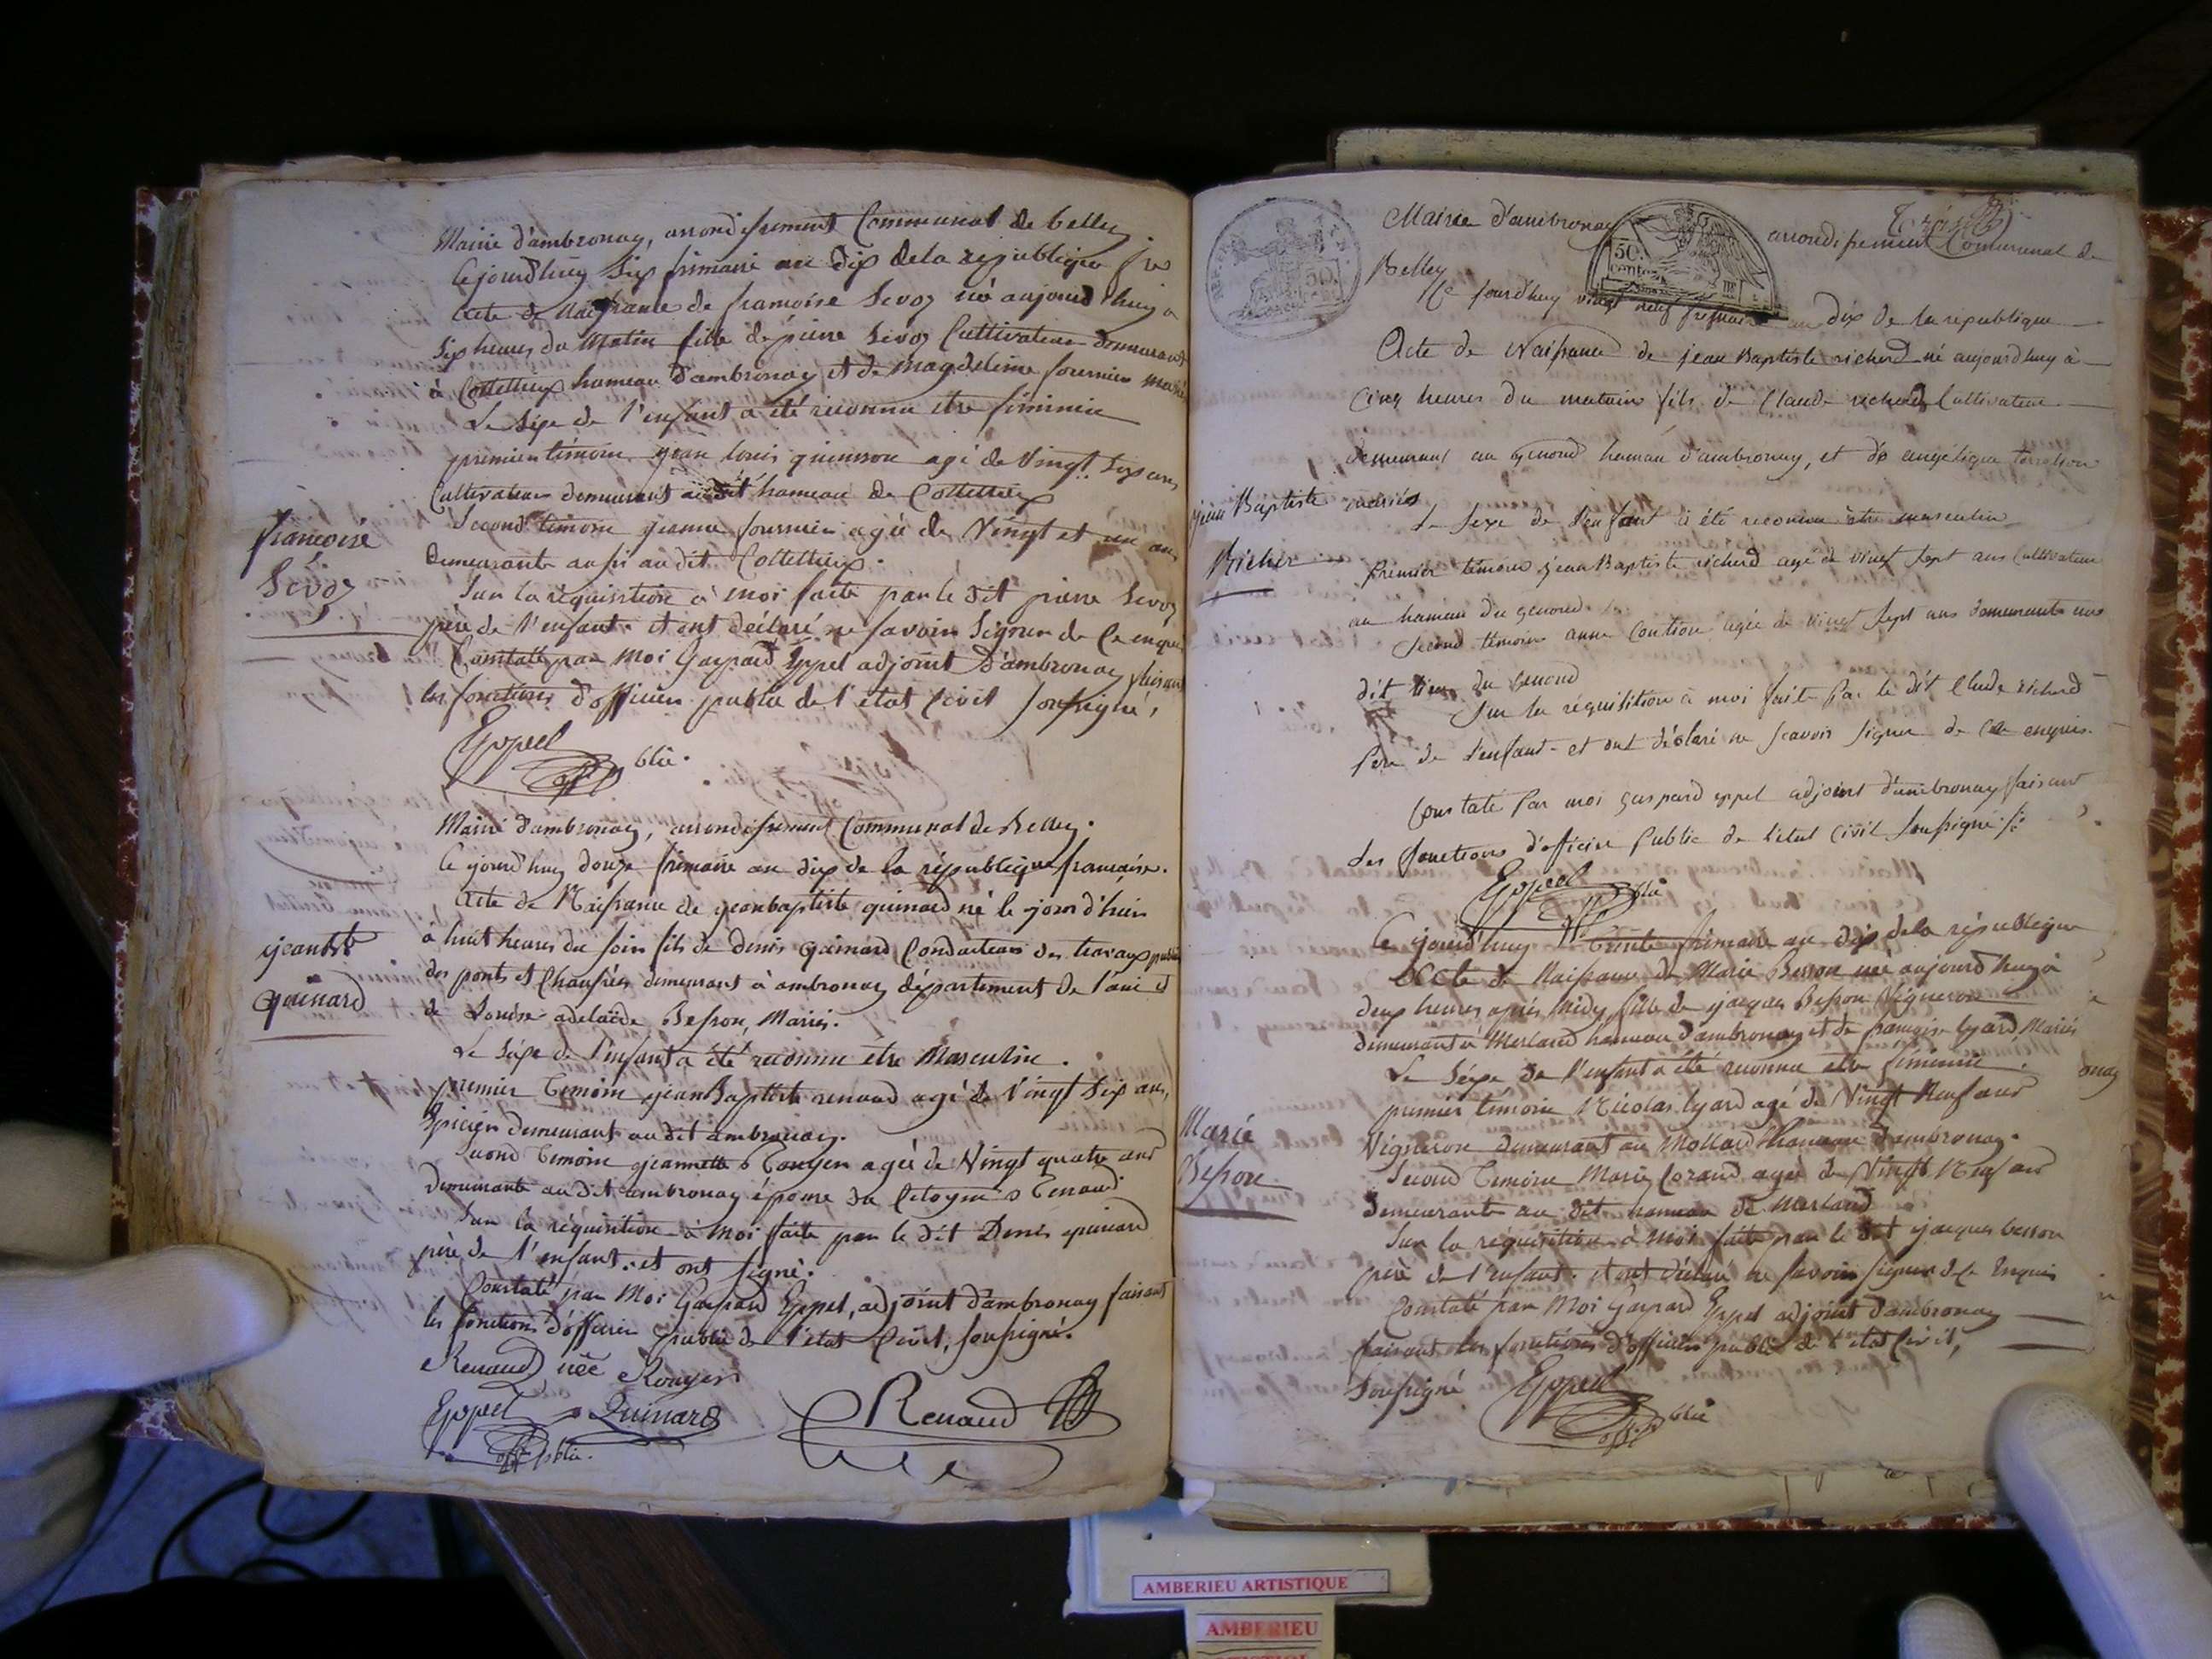 Mairie d'ambronay, arrondissement Communal de belley.
Cejourd'huy Six frimaire an dix de la république fre
Acte de Naissance de francoise Sevoz né aujourd'huy a
Six heures du Matin fille de pierre Sevoz Cultivateur demeurant
à Cottettieux hameau d'ambronay et de magdeleine fournier Mariés
Le Sexe de l'enfant a été reconnu etre féminin
premier témoin jean louis guinson agé de Vingt Six ans
Cultivateur demeurant audit hameau de Cottettieux
Second témoin jeanne fournier agée de Vingt et un ans
Demeurante aussi au dit Cottettieux.
francoise
Sevoz
Sur la réquisition à moi faite par le dit pierre Sevoz
père de l'enfant. et ont déclaré ne savoir Signer de Ce enquis
Constaté par Moi Gaspard Eppel adjoint d'ambronay faisant
les fonctions d'officier public de l'état Civil Soussigné,
Eppel
off. blic.
Mairie d'ambronay, arrondissement Communal de Belley.
Ce jourd'huy douze frimaire an dix de la république francaise.
Acte de Naissance de jeanbaptiste quinard né le jour d'hier
à huit heures du soir fils de denis quinard Conducteur des travaux publics
des ponts et Chaussées demeurant à ambronay département de l'ain et
de Louise adelaïde Besson, Mariés.
jean bte
quinard
Le Sexe de l'enfant a été reconnu être Masculin.
premier Temoin jean Baptiste renaud agé de Vingt Six ans,
Epicier demeurant au dit ambronay.
Second Temoin jeannette Rouyer agée de Vingt quatre ans
demeurante au dit ambronay épouse du Citoyen Renaud.
Sur la réquisition à moi faite par le dit Denis quinard
père de l'enfant. et ont signé.
Constaté par Moi Gaspard Eppel, adjoint d'ambronay faisant
les fonctions d'officier public de l'état Civil, soussigné.
Renaud née Rouyer
Eppel Quinard Renaud
off. pblic.
REP. FRA. 50.
50. centes
Mairie d'ambronay arrondissement Communal de
Belley
Ce jourd'huy vingt neuf frimaire an dix de la république
Acte de Naissance de jean Baptiste richerd né aujourd'huy à
Cinq heures du matin fils de Claude richerd Cultivateur
demeurant au genoud hameau d'ambronay, et de angélique
mariés
jean Baptiste
Richer
Le Sexe de l'enfant à été reconnu être masculin
Premier témoin jean Baptiste richerd agé de vingt Sept ans Cultivateur
au hameau du genoud
Second témoin anne Coution agée de vingt Sept ans demeurante au
dit lieu du genoud
Sur la réquisition à moi faite Par le dit Claude richerd
Père de L'enfant et ont déclaré ne Scavoir Signer de Ce enquis.
Constaté Par moi gaspard eppel adjoint d'ambronay faisant
Les fonctions d'officier Public de L'etat Civil Soussigné
Eppel
off. blic
Ce jourd'huy trente frimaire an dix de la république
Acte de Naissance de Marie Besson née aujourd'huy à
deux heures après Midy, fille de jacques Besson Vigneron
demeurant à Merland hameau d'ambronay et de francoise lyard Mariés
Le Sexe de l'enfant a été reconnu etre féminin.
premier témoin Nicolas lyard agé de Vingt Neuf ans
Vigneron demeurant au Mollard hameau d'ambronay.
Marie
Besson
Second Temoin Marie Corand agée de Vingt Neuf ans
Demeurante au dit hameau de Merland
Sur la réquisition à Moi faite par le dit jacques besson
père de l'enfant. et ont déclaré ne savoir signer de Ce Enquis
Constaté par Moi Gaspard Eppel adjoint d'ambronay
faisant les fonctions d'officier public de l'état Civil,
Soussigné Eppel
off. blic
onay
AMBERIEU ARTISTIQUE
AMBERIEU